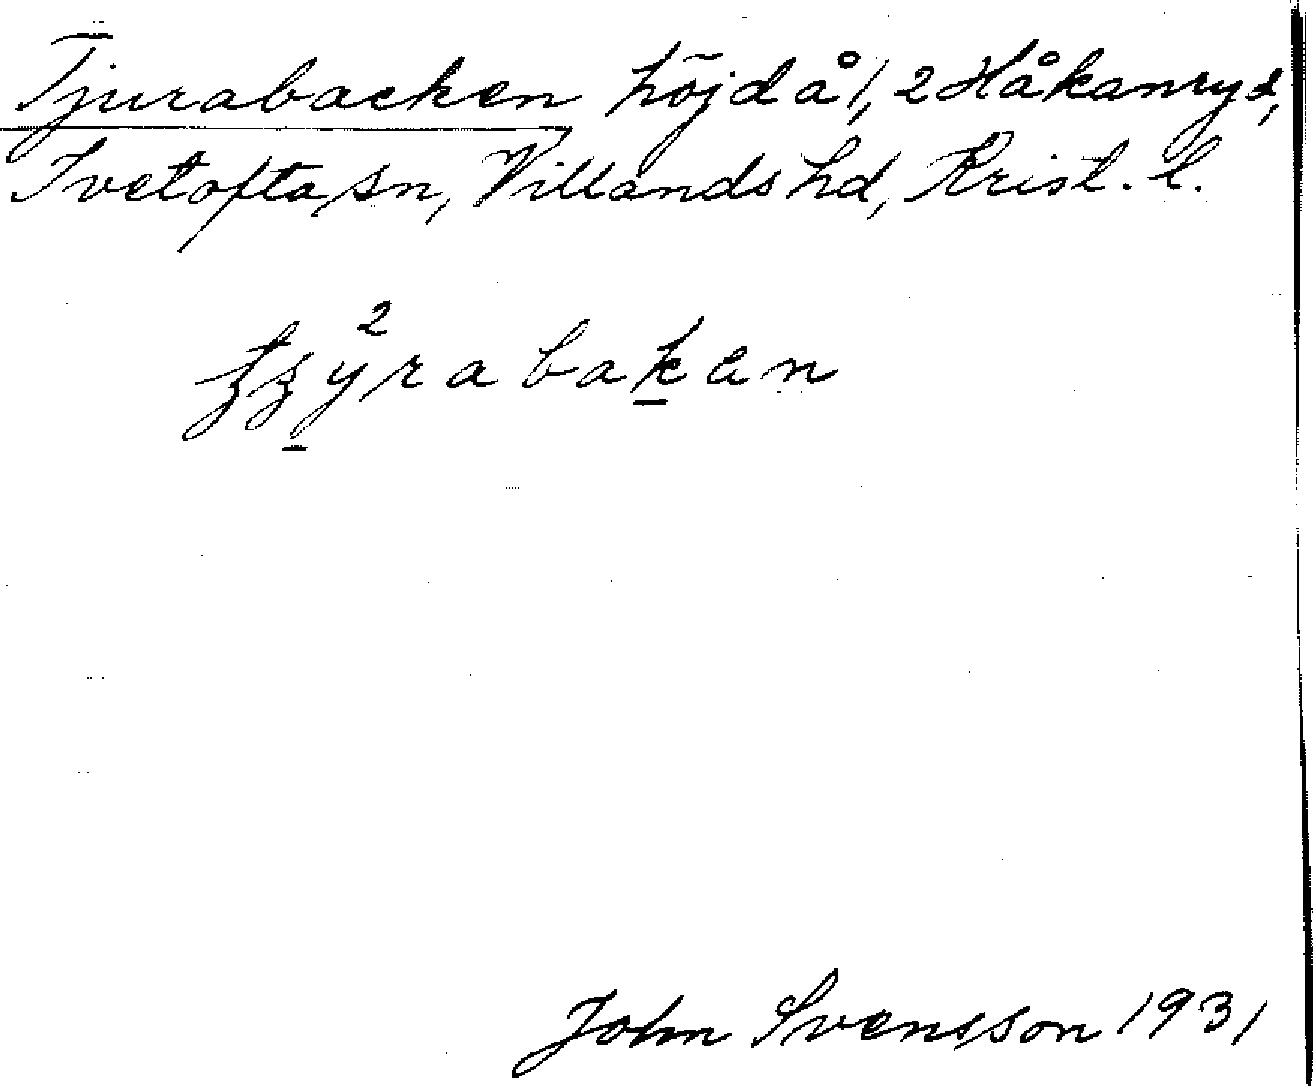 Tjurabacken höjd å 1,2 Håkanryd,
Ivetofta sn, Villands hd, Krist. l.
John Svensson 1931